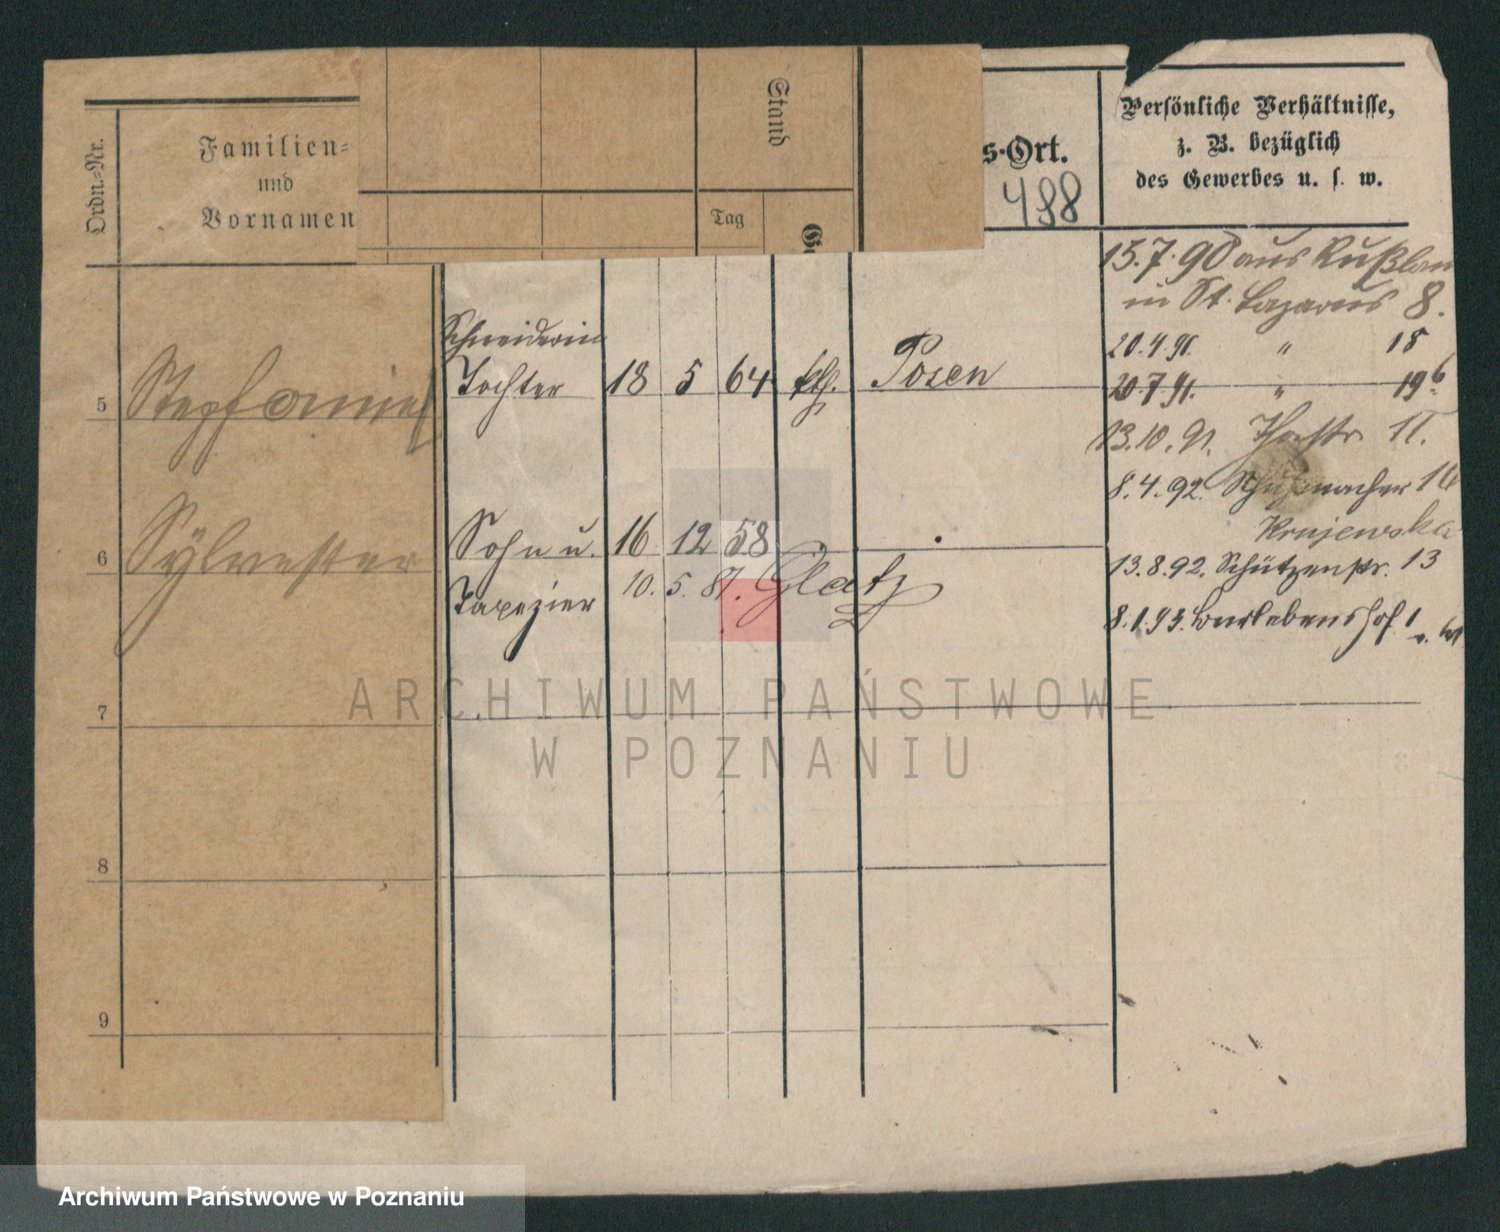 Ordn.-Nr.
Familien-
und
Vornamen
Stand
Tag
s-Ort.
488
Persönliche Verhältnisse,
z. B. bezüglich
des Gewerbes u. s. w.
15.7.90 aus Rußlan
in St. Lazarus 8.
20.4.91. " 18
20.7.91. " 19b
13.10.91.
8.4.92. Schuhmacher 16
Krajewska
13.8.92. Schützenstr. 13
8.1.93.
Schneiderin
5 Stephanie Tochter 18 5 64 kth. Posen
6 Sylvester Sohn u. 16 12 58
Tapezier 10. 5. 87. Glatz
7
8
9
ARCHIWUM PAŃSTWOWE
W POZNANIU
Archiwum Państwowe w Poznaniu